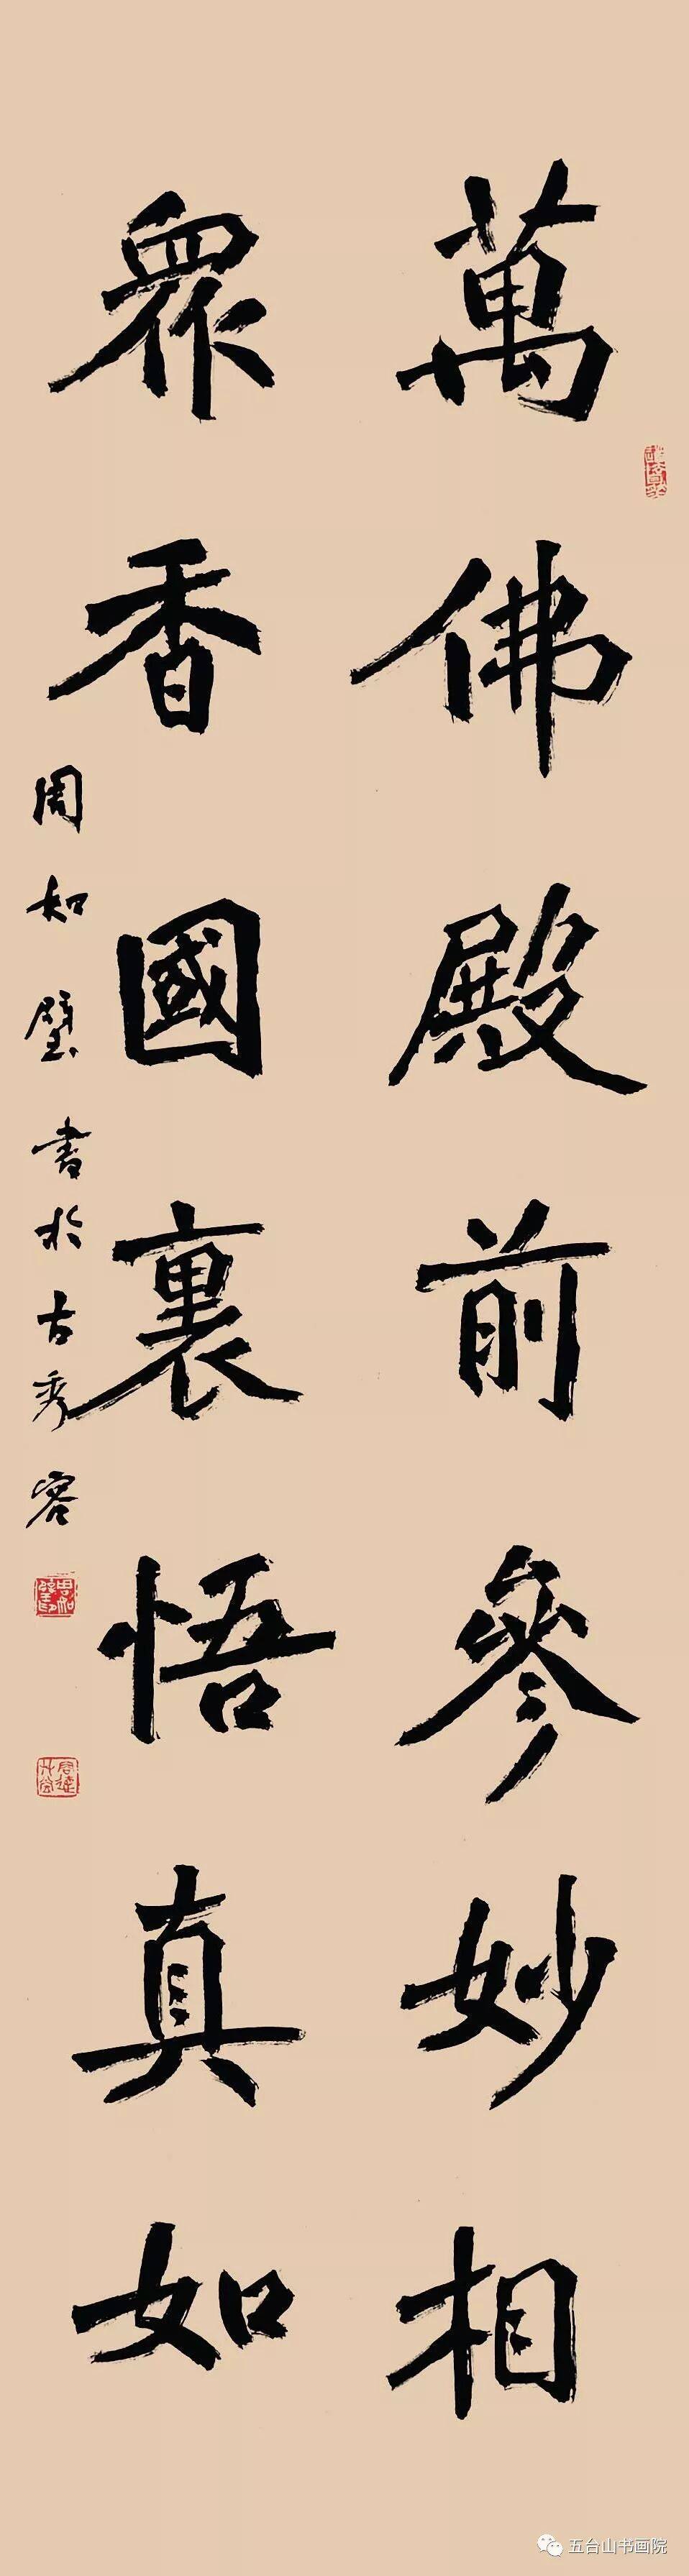 萬佛殿前參妙相
眾香國裏悟真如
周如璧書於古秀容
五台山书画院